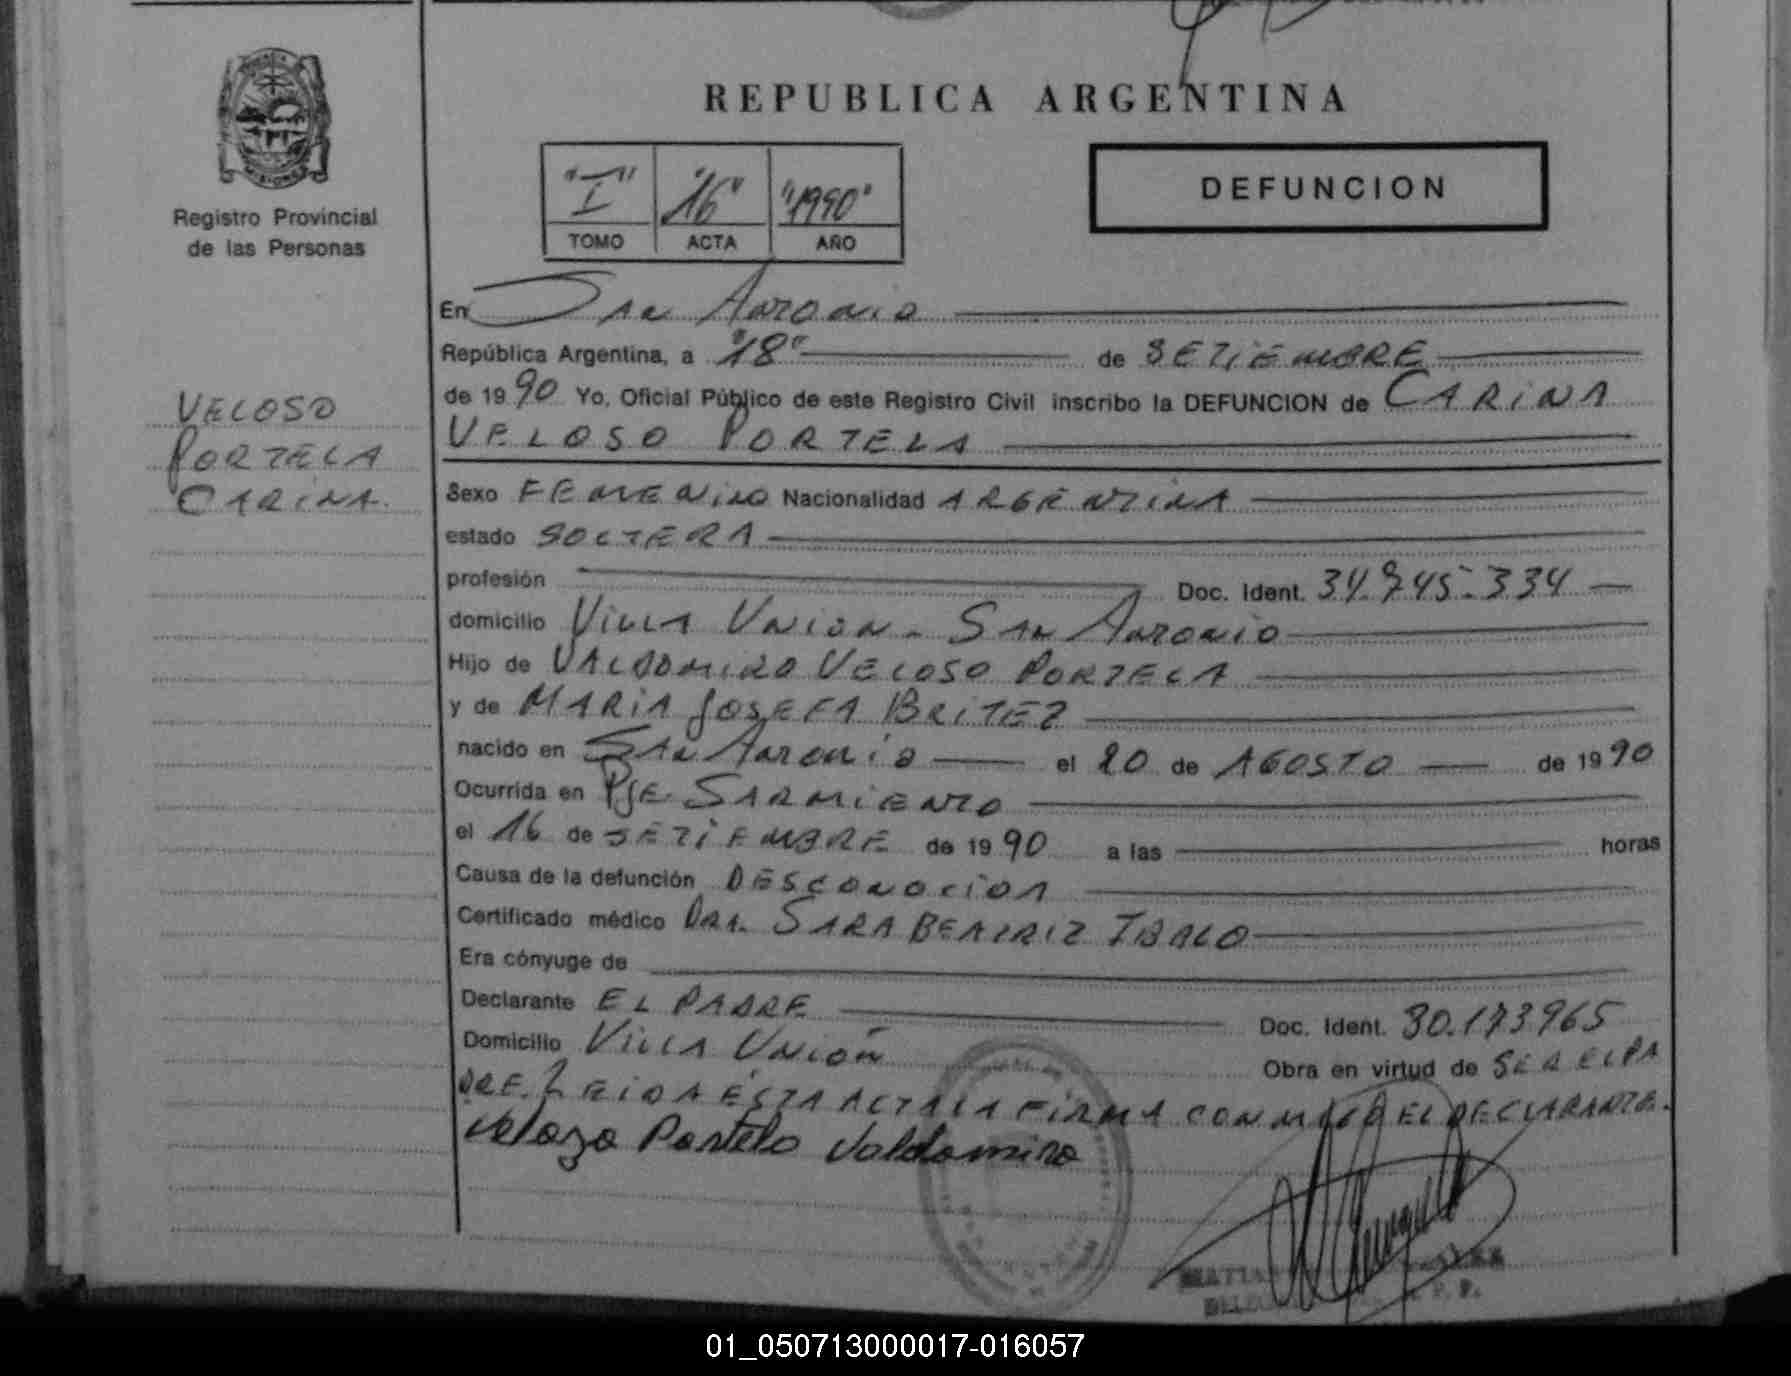 REPUBLICA ARGENTINA
MISIONES
Registro Provincial
de las Personas
"I" "16" "1990"
TOMO ACTA AÑO
DEFUNCION
VELOSO
PORTELA
CARINA.
En San Antonio
República Argentina, a "18" de SETIEMBRE
de 1990 Yo, Oficial Público de este Registro Civil inscribo la DEFUNCION de CARINA
VELOSO PORTELA
Sexo FEMENINO Nacionalidad ARGENTINA
estado SOLTERA
profesión Doc. Ident. 34.745.334
domicilio VILLA UNION - SAN ANTONIO
Hijo de VALDOMIRO VELOSO PORTELA
y de MARIA JOSEFA BRITEZ
nacido en SAN ANTONIO el 20 de AGOSTO de 1990
Ocurrida en PJE. SARMIENTO
el 16 de SETIEMBRE de 1990 a las horas
Causa de la defunción DESCONOCIDA
Certificado médico DRA. SARA BEATRIZ IBALO
Era cónyuge de
Declarante EL PADRE Doc. Ident. 30.173965
Domicilio VILLA UNIÓN Obra en virtud de SER EL PA
DRE. LEIDA ESTA ACTA LA FIRMA CONMIGO EL DECLARANTE.
Velozo Portela Valdomiro
01_050713000017-016057